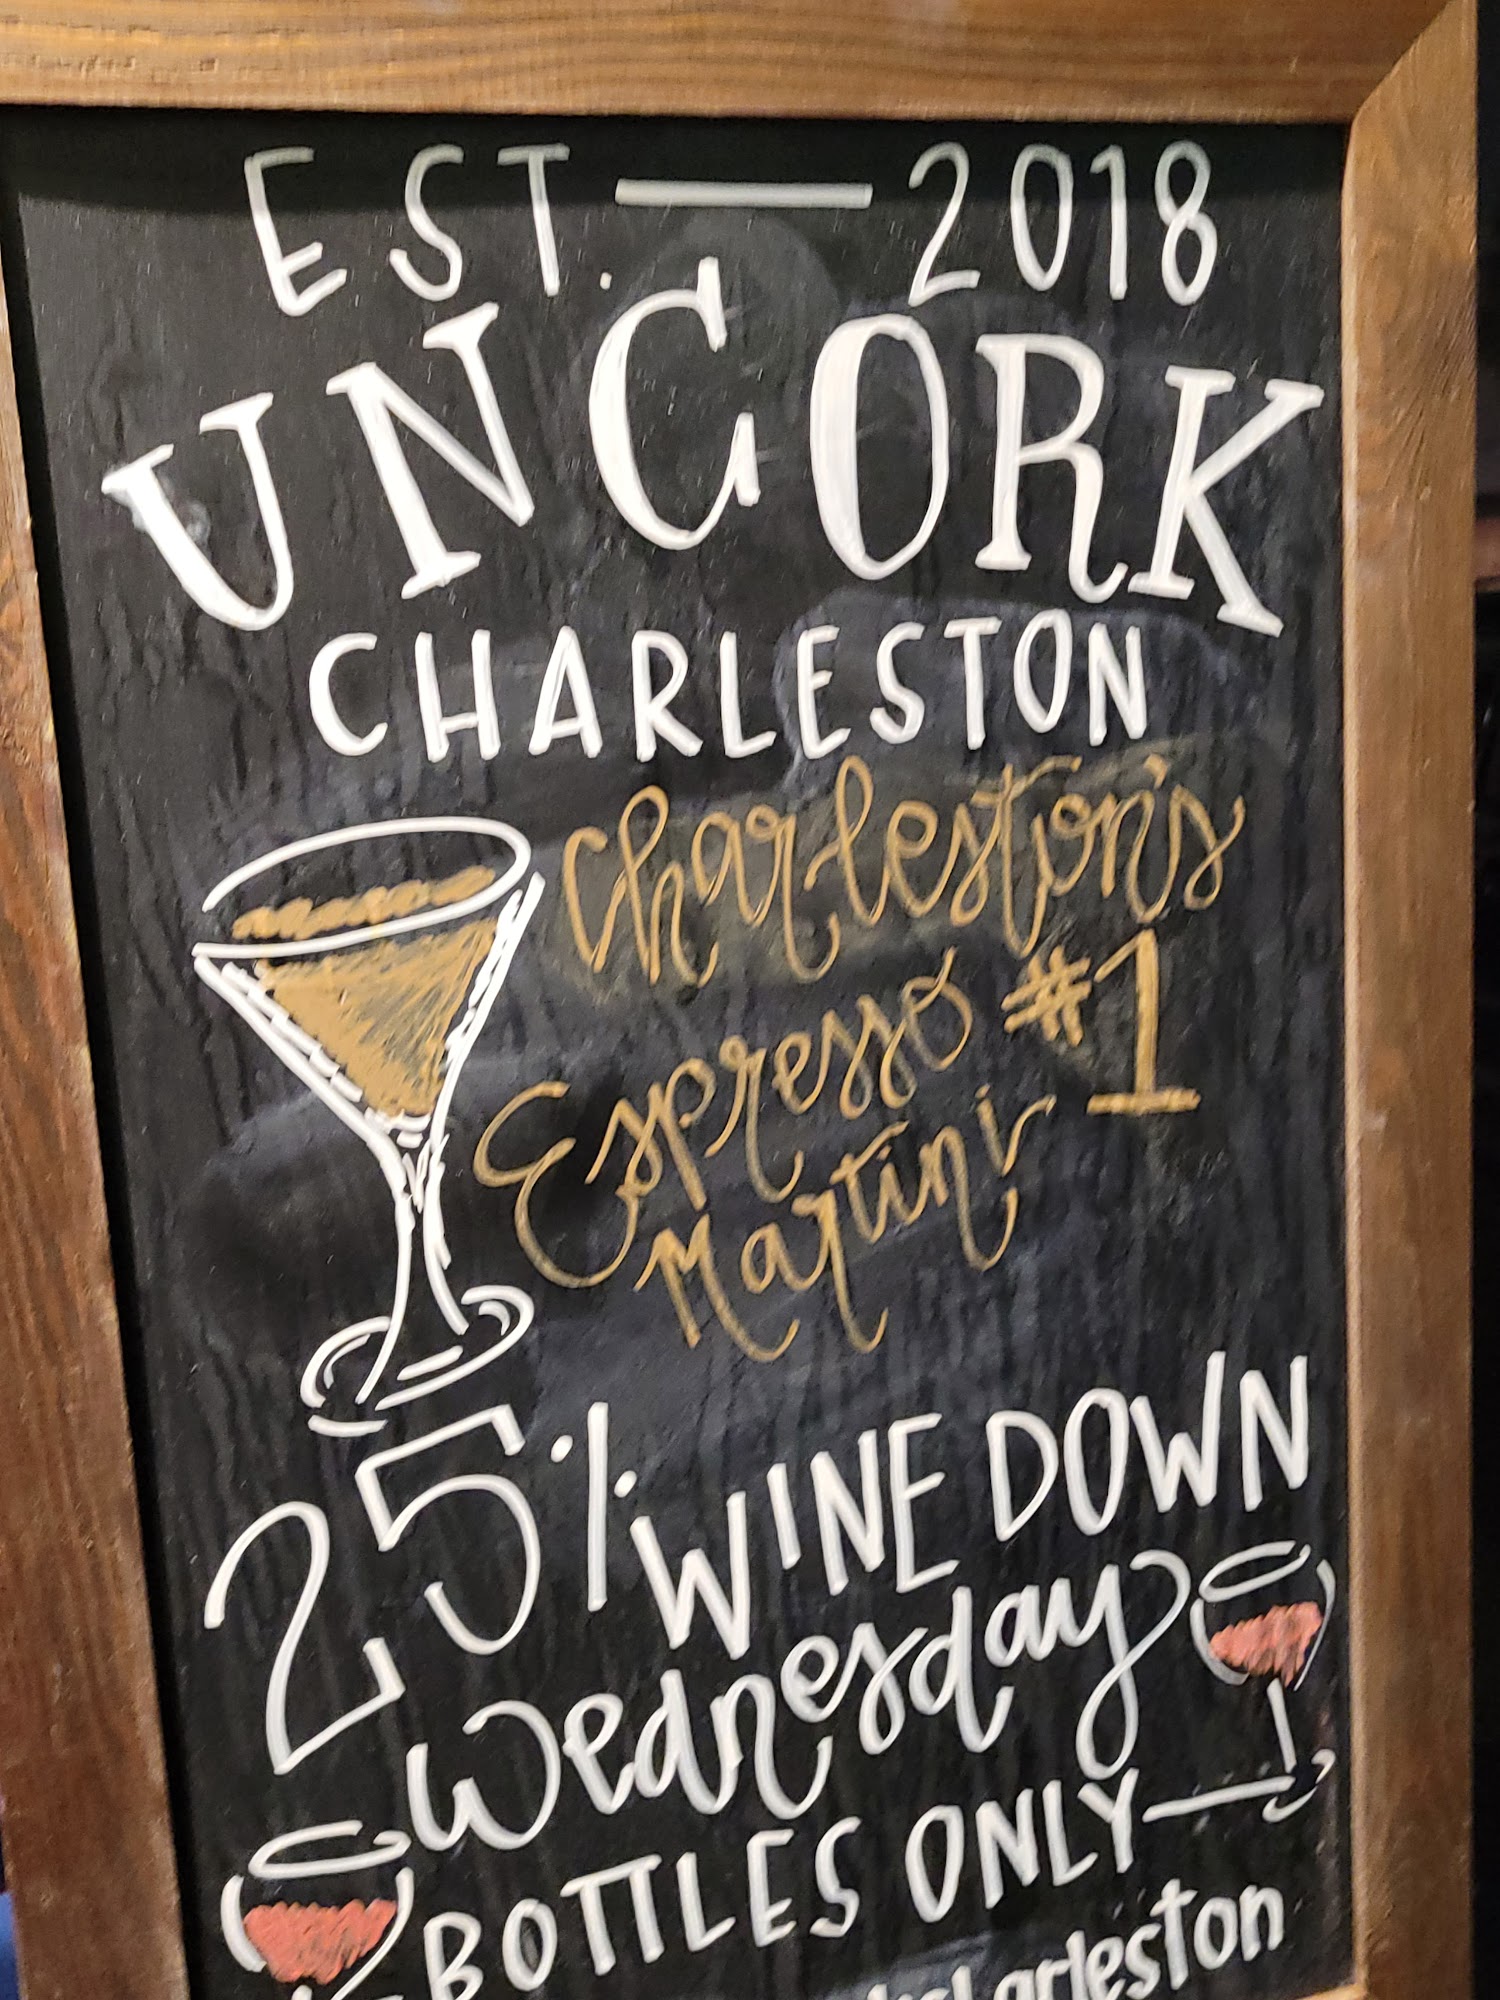 EST. — 2018
UNCORK
CHARLESTON
Charleston's
#1
Espresso
Martini
25% WINE DOWN
Wednesday
BOTTLES ONLY